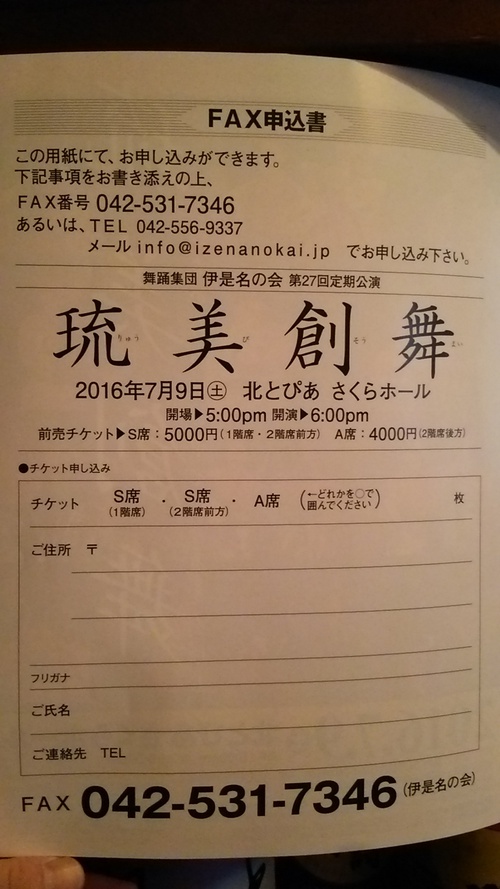 FAX申込書
この用紙にて、お申し込みができます。
下記事項をお書き添えの上、
FAX番号 042-531-7346
あるいは、TEL 042-556-9337
メール info@izenanokai.jp でお申し込み下さい。
舞踊集団 伊是名の会 第27回定期公演
琉りゅう 美び 創そう 舞まい
2016年7月9日㊏ 北とぴあ さくらホール
開場▶5:00pm 開演▶6:00pm
前売チケット▶S席：5000円(1階席・2階席前方) A席：4000円(2階席後方)
●チケット申し込み
チケット S席(1階席) ・ S席(2階席前方) ・ A席 (←どれかを○で囲んでください) 枚
ご住所 〒
フリガナ
ご氏名
ご連絡先 TEL
FAX 042-531-7346 (伊是名の会)